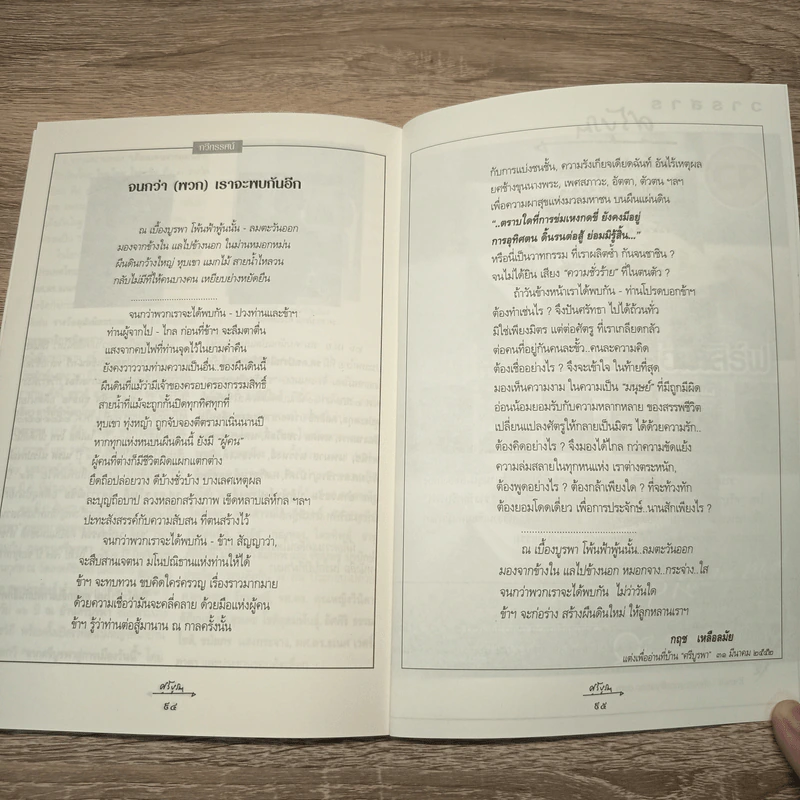 กวีทรรศน์
จนกว่า (พวก) เราจะพบกันอีก
ณ เบื้องบูรพา โพ้นฟ้าฟู้นนั้น - ลมตะวันออก
มองจากข้างใน แลไปข้างนอก ในม่านหมอกหม่น
ผืนดินกว้างใหญ่ หุบเขา แมกไม้ สายน้ำไหลวน
กลับไม่มีที่ให้คนบางคน เหยียบย่างหยัดยืน
..............................
จนกว่าพวกเราจะได้พบกัน - ปวงท่านและข้าฯ
ท่านผู้จากไป - ไกล ก่อนที่ข้าฯ จะลืมตาตื่น
แสงจากคบไฟที่ท่านจุดไว้ในยามค่ำคืน
ยังคงวาววามท่ามความเป็นอื่น..ของผืนดินนี้
ผืนดินที่แม้ว่ามีเจ้าของครอบครองกรรมสิทธิ์
สายน้ำที่แม้จะถูกกั้นปิดทุกทิศทุกที่
หุบเขา ทุ่งหญ้า ถูกจับจองตีตรามาเนิ่นนานปี
หากทุกแห่งหนบนผืนดินนี้ ยังมี “ผู้คน”
ผู้คนที่ต่างก็มีชีวิตผิดแผกแตกต่าง
ยึดถือปล่อยวาง ดีบ้างชั่วบ้าง บางเลศเหตุผล
ละบุญถือบาป ลวงหลอกสร้างภาพ เข็ดหลาบเล่ห์กล ฯลฯ
ปะทะสังสรรค์กับความสับสน ที่ตนสร้างไว้
จนกว่าพวกเราจะได้พบกัน - ข้าฯ สัญญาว่า,
จะสืบสานเจตนา มโนปณิธานแห่งท่านให้ได้
ข้าฯ จะทบทวน ขบคิดใคร่ครวญ เรื่องราวมากมาย
ด้วยความเชื่อว่ามันจะคลี่คลาย ด้วยมือแห่งผู้คน
ข้าฯ รู้ว่าท่านต่อสู้มานาน ณ กาลครั้งนั้น
ศรีบูรพา
๙๔
วารสาร
กับการแบ่งชนชั้น, ความรังเกียจเดียดฉันท์ อันไร้เหตุผล
ยศช้างขุนนางพระ, เพศสภาวะ, อัตตา, ตัวตน ฯลฯ
เพื่อความผาสุขแห่งมวลมหาชน บนผืนแผ่นดิน
“..ตราบใดที่การข่มเหงกดขี่ ยังคงมีอยู่
การอุทิศตน ดิ้นรนต่อสู้ ย่อมมิรู้สิ้น...”
หรือนี่เป็นวาทกรรม ที่เราผลิตซ้ำ กันจนชาชิน ?
จนไม่ได้ยิน เสียง “ความชั่วร้าย” ที่ในตนตัว ?
ถ้าวันข้างหน้าเราได้พบกัน - ท่านโปรดบอกข้าฯ
ต้องทำเช่นไร ? จึงปันศรัทธา ไปได้ถ้วนทั่ว
มิใช่เพียงมิตร แต่ต่อศัตรู ที่เราเกลียดกลัว
ต่อคนที่อยู่กันคนละขั้ว..คนละความคิด
ต้องเชื่ออย่างไร ? จึงจะเข้าใจ ในท้ายที่สุด
มองเห็นความงาม ในความเป็น “มนุษย์” ที่มีถูกมีผิด
อ่อนน้อมยอมรับกับความหลากหลาย ของสรรพชีวิต
เปลี่ยนแปลงศัตรูให้กลายเป็นมิตร ได้ด้วยความรัก..
ต้องคิดอย่างไร ? จึงมองได้ไกล กว่าความขัดแย้ง
ความล่มสลายในทุกหนแห่ง เราต่างตระหนัก,
ต้องพูดอย่างไร ? ต้องกล้าเพียงใด ? ที่จะท้วงทัก
ต้องยอมโดดเดี่ยว เพื่อการประจักษ์..นานสักเพียงไร ?
..............................
ณ เบื้องบูรพา โพ้นฟ้าฟู้นนั้น..ลมตะวันออก
มองจากข้างใน แลไปข้างนอก หมอกจาง..กระจ่าง..ใส
จนกว่าพวกเราจะได้พบกัน ไม่ว่าวันใด
ข้าฯ จะก่อร่าง สร้างผืนดินใหม่ ให้ลูกหลานเราฯ
กฤช เหลือลมัย
แต่งเพื่ออ่านที่บ้าน “ศรีบูรพา” ๓๑ มีนาคม ๒๕๕๒
ศรีบูรพา
๙๕